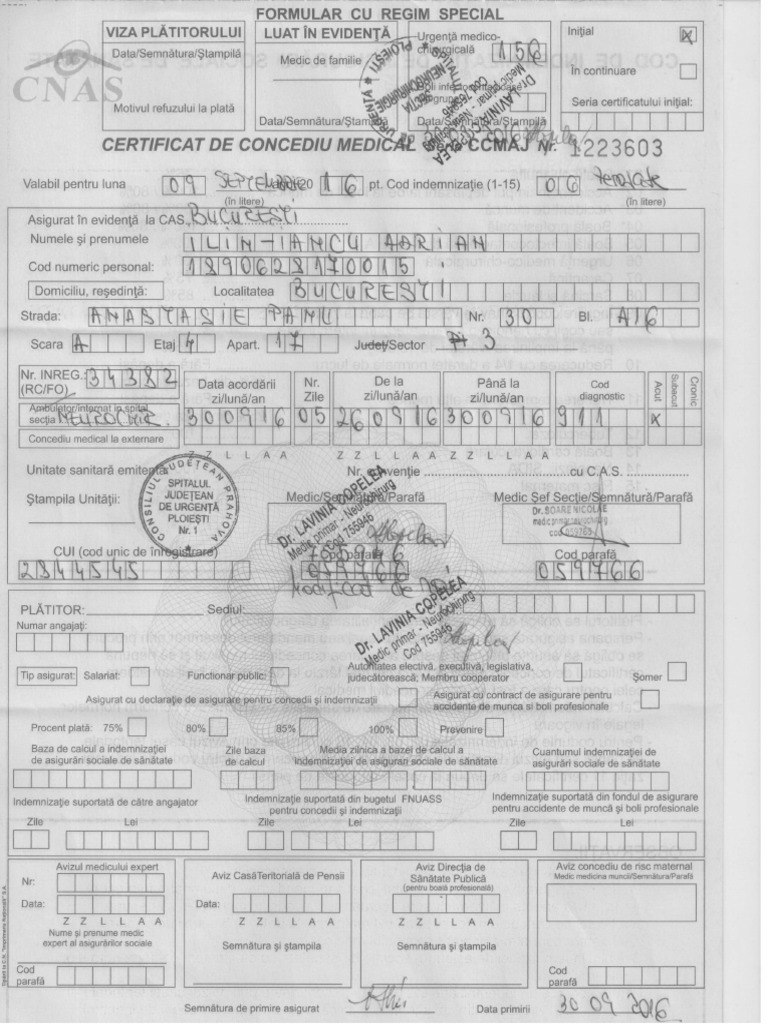 FORMULAR CU REGIM SPECIAL
CNAS
VIZA PLĂTITORULUI
Data/Semnătura/Ștampilă
Motivul refuzului la plată
LUAT ÎN EVIDENȚĂ
Medic de familie
Data/Semnătura/Ștampila
Urgență medico-
chirurgicală
156
Data/Semnătura/Ștampila
Inițial X
În continuare
Seria certificatului inițial:
CERTIFICAT DE CONCEDIU MEDICAL
CCMAJ Nr. 1223603
Valabil pentru luna 09 SEPTEMBRIE 20 16 pt. Cod indemnizație (1-15) 06
(în litere) (în litere)
Asigurat în evidență la CAS BUCUREȘTI
Numele și prenumele ILIN-IANCU ADRIAN
Cod numeric personal: 1890628170015
Domiciliu, reședință: Localitatea BUCUREȘTI
Strada: ANASTASIE PANU Nr. 30 Bl. A16
Scara A Etaj 4 Apart. 17 Județ/Sector 3
Nr. INREG. (RC/FO) 34382
Ambulator/internat în spital
secția NEUROCHIR.
Concediu medical la externare
Data acordării zi/lună/an Nr. Zile De la zi/lună/an Până la zi/lună/an Cod diagnostic Acut Subacut Cronic
300916 05 260916 300916 911 X
Z Z L L A A Z Z L L A A Z Z L L A A
Unitate sanitară emitentă Nr. convenție cu C.A.S.
Ștampila Unității:
CONSILIUL JUDEȚEAN PRAHOVA
SPITALUL
JUDEȚEAN
DE URGENȚĂ
PLOIEȘTI
Nr. 1
Medic/Semnătură/Parafă
Dr. LAVINIA COPELEA
Medic primar - Neurochirurg
Cod 755946
Medic Șef Secție/Semnătură/Parafă
Dr. SOARE NICOLAE
medic primar neurochirurg
cod 059766
CUI (cod unic de înregistrare) Cod parafă Cod parafă
2844545 755946 059766
059766
Modif cod de
Dr. LAVINIA COPELEA
Medic primar - Neurochirurg
Cod 755946
PLĂTITOR: Sediul:
Numar angajați:
Tip asigurat: Salariat: Functionar public: Autoritatea electivă, executivă, legislativă, judecătorească; Membru cooperator Șomer
Asigurat cu declarație de asigurare pentru concedii și indemnizații
Asigurat cu contract de asigurare pentru accidente de munca si boli profesionale
Procent plată: 75% 80% 85% 100% Prevenire
Baza de calcul a indemnizației de asigurări sociale de sănătate
Zile baza de calcul
Media zilnica a bazei de calcul a indemnizației de asigurari sociale de sănătate
Cuantumul indemnizației de asigurări sociale de sănătate
Indemnizație suportată de către angajator
Indemnizație suportată din bugetul FNUASS pentru concedii și indemnizații
Indemnizație suportată din fondul de asigurare pentru accidente de muncă și boli profesionale
Zile Lei Zile Lei Zile Lei
Avizul medicului expert
Nr:
Data:
Z Z L L A A
Nume și prenume medic
expert al asigurărilor sociale
Cod parafă
Aviz CasăTeritorială de Pensii
Data:
Z Z L L A A
Semnătura și ștampila
Aviz Direcția de
Sănătate Publică
(pentru boală profesională)
Z Z L L A A
Semnătura și ștampila
Aviz concediu de risc maternal
Medic medicina muncii/Semnătura/Parafă
Cod parafă
Semnătura de primire asigurat
Data primirii 30 09 2016